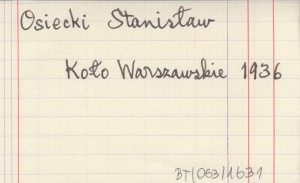 Osiecki Stanisław
Koło Warszawskie 1936
BT(063)1631